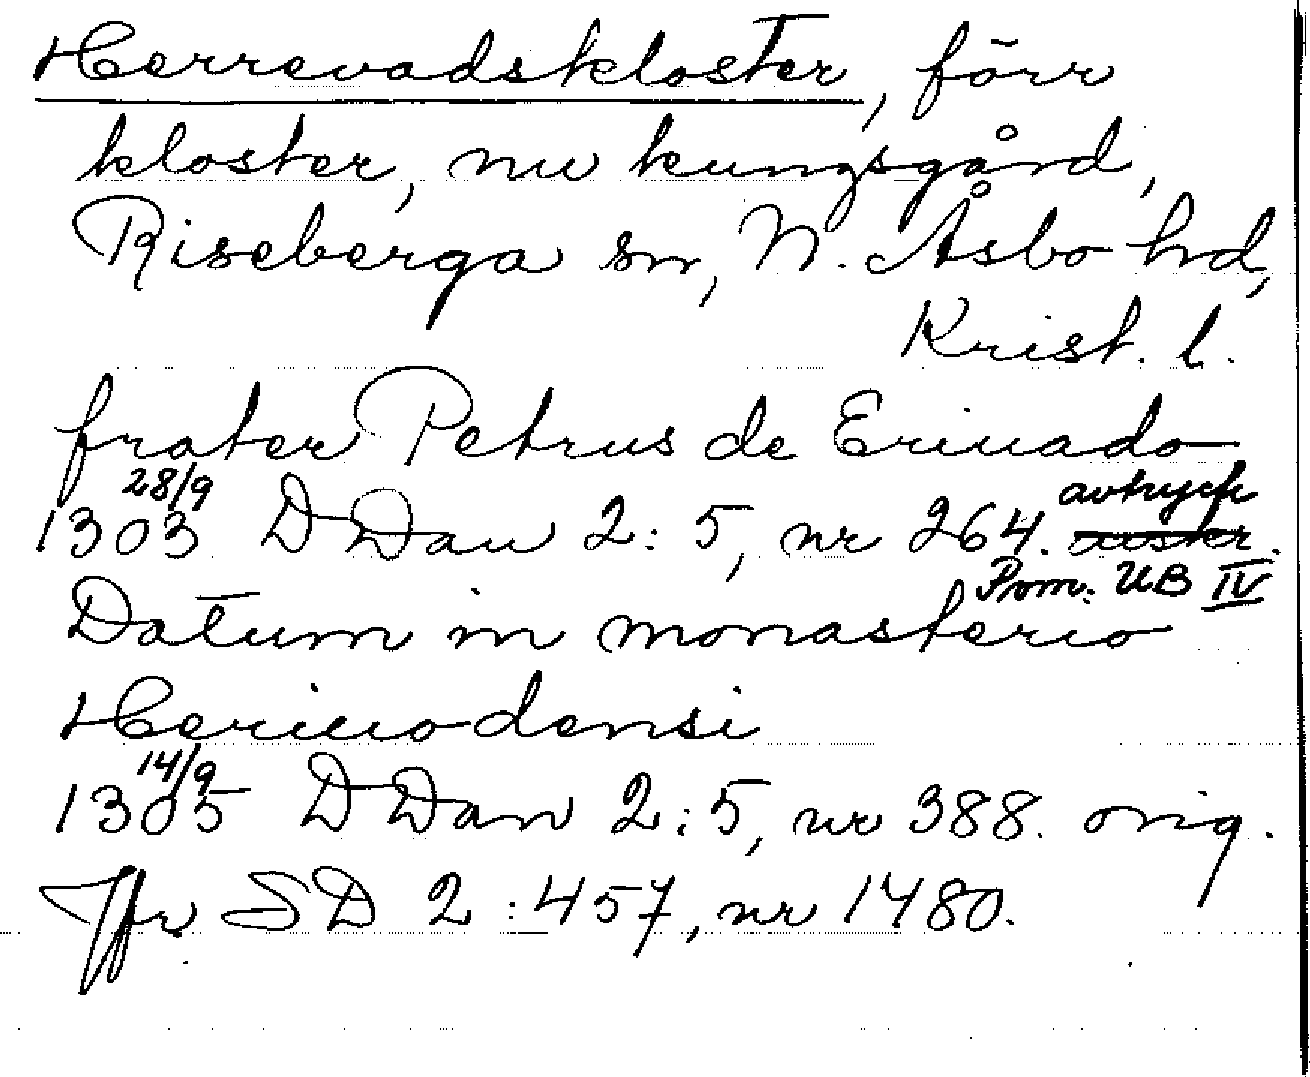 Herrevadskloster, förr
kloster, nu kungsgård,
Riseberga sn, N. Åsbo hd,
Krist. l.
frater Petrus de Eriuado
1303 28/9 DDan 2:5, nr 264. avtryck
Pom. UB IV
Datum in monasterio
Heriuodensi
1305 14/9 DDan 2:5, nr 388. orig.
Jfr SD 2:457, nr 1480.